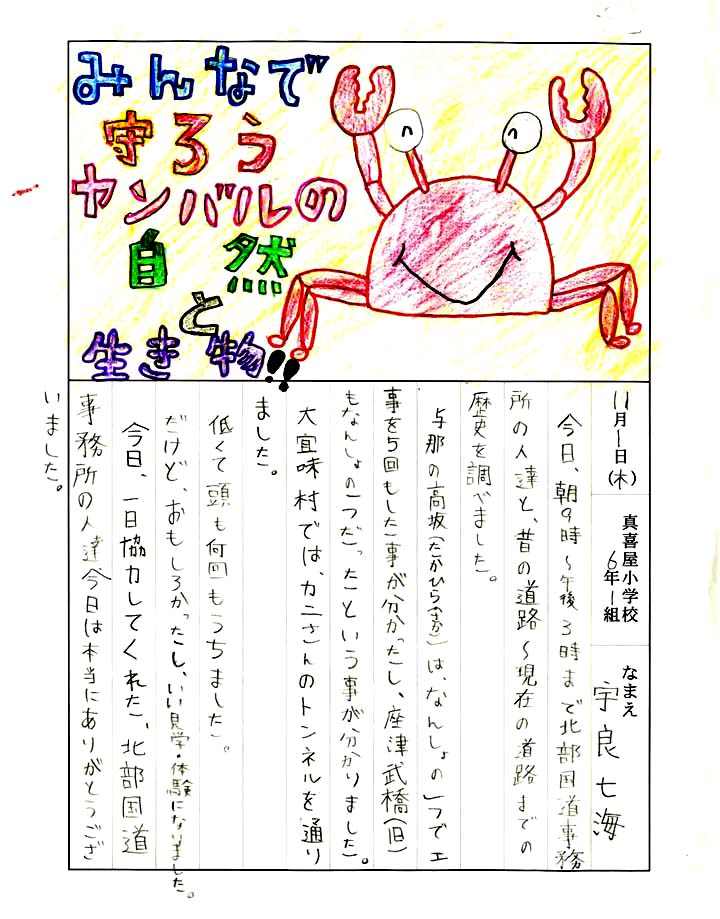 みんなで
守ろう
ヤンバルの
自然
と
生き物!!
11月1日(木)
真喜屋小学校
6年1組
なまえ
宇良七海
今日、朝9時～午後3時まで北部国道事務
所の人達と、昔の道路～現在の道路までの
歴史を調べました。
与那の高坂(たかひら(さか))は、なんしょの一つで工
事を5回もした事が分かったし、座津武橋(旧)
もなんしょの一つだったという事が分かりました。
大宜味村では、カニさんのトンネルを通り
ました。
低くて頭も何回もうちました。
だけど、おもしろかったし、いい見学・体験になりました。
今日、一日協力してくれた、北部国道
事務所の人達、今日は本当にありがとうござ
いました。